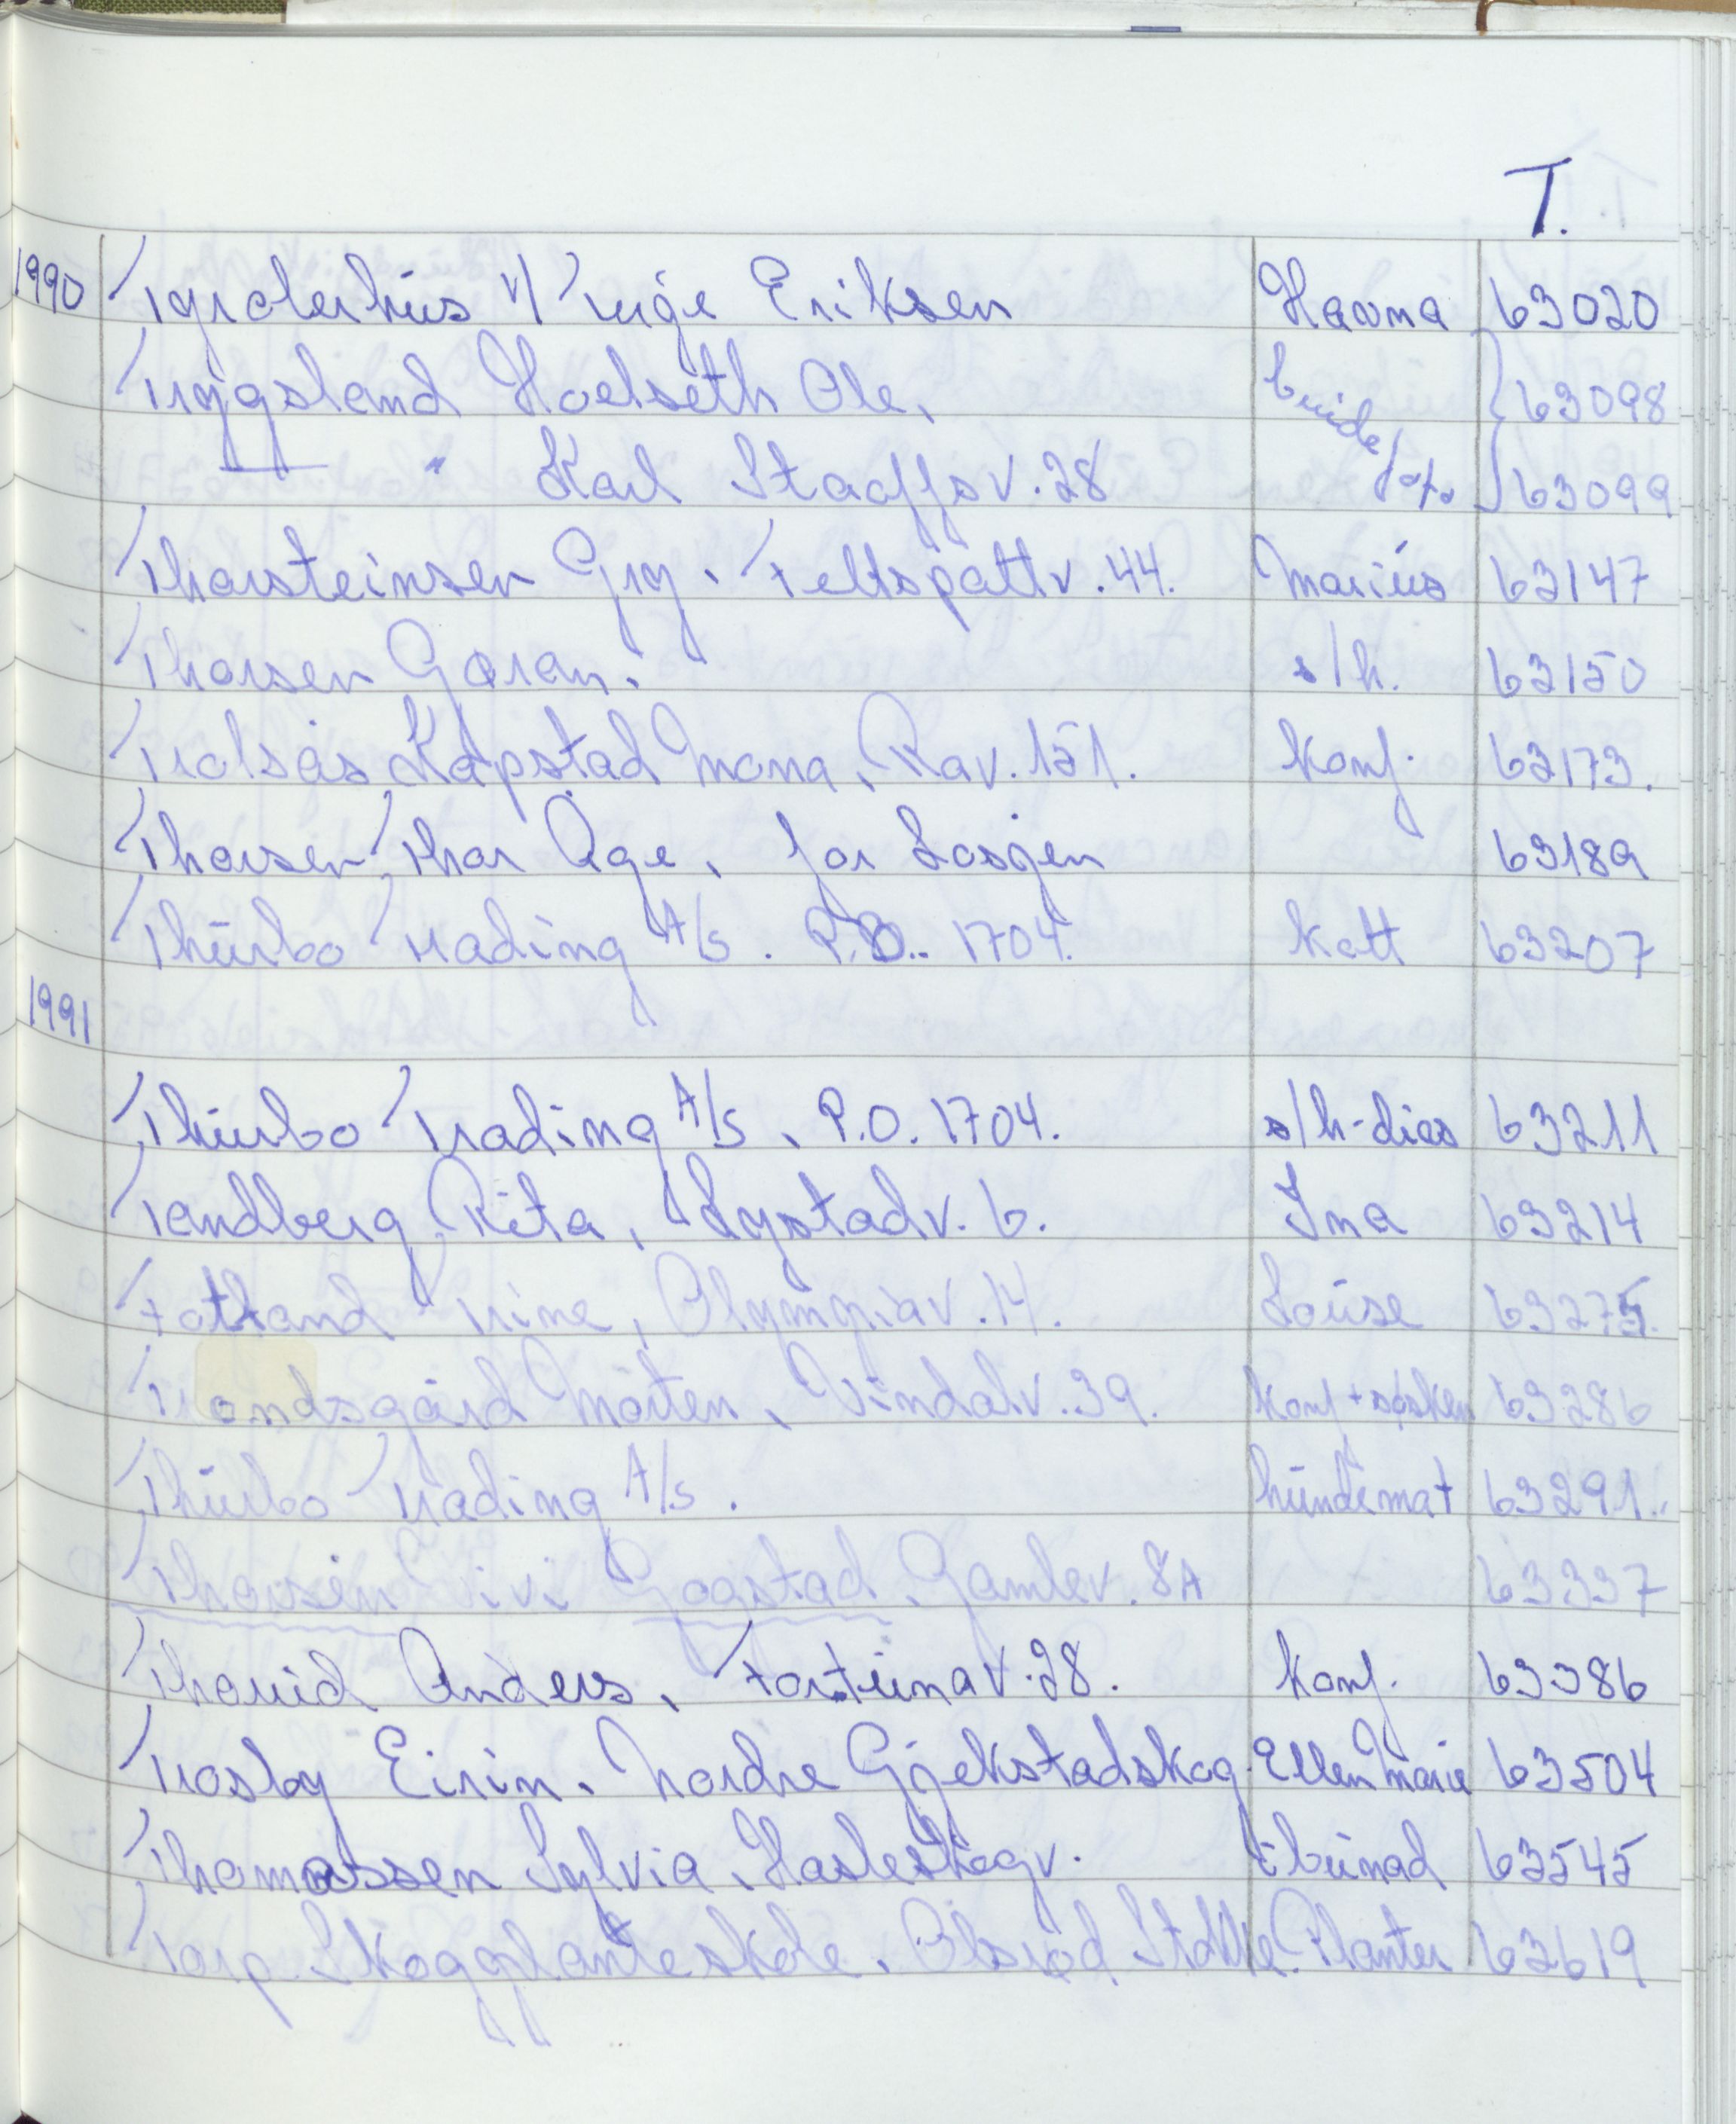 T.
1990 Tyrolerhus v/ Terje Eriksen Hanna 63020
Tryggsland Hoelseth Ole, brude 63098
" Karl Staaffsv. 28 foto 63099
Thorsteinsen Gry. Feltspattv. 44. Marius 63147
Thorsen Gøran. s/h. 63150
Trolsås Kopstad Mona, Rav. 151. Konf. 63173.
Thorsen Thor Åge, for Losjen 63189
Thürbo Trading A/s. P.O. 1704. Katt 63207
1991
Thürbo Trading A/s, P.O. 1704. s/h-dias 63211
Tandberg Rita, Lystadv. 6. Ina 63214
Totland Trine, Olympiav. 14. Louise 63275.
Trondsgård Morten, Vindalv. 39. Konf + søsken 63286
Thürbo Trading A/s. hundemat 63291.
Thorsen Vivi Gogstad, Gamlev. 8A 63337
Thorud Anders, Fortunav. 28. Konf. 63386
Trosby Eirin. Nordre Gjekstadskog. Ellen Marie 63504
Thomassen Sylvia, Hasleskogv. i bunad 63545
Torp Skogplanteskole. Olsrød, Stokke. Planter 63619